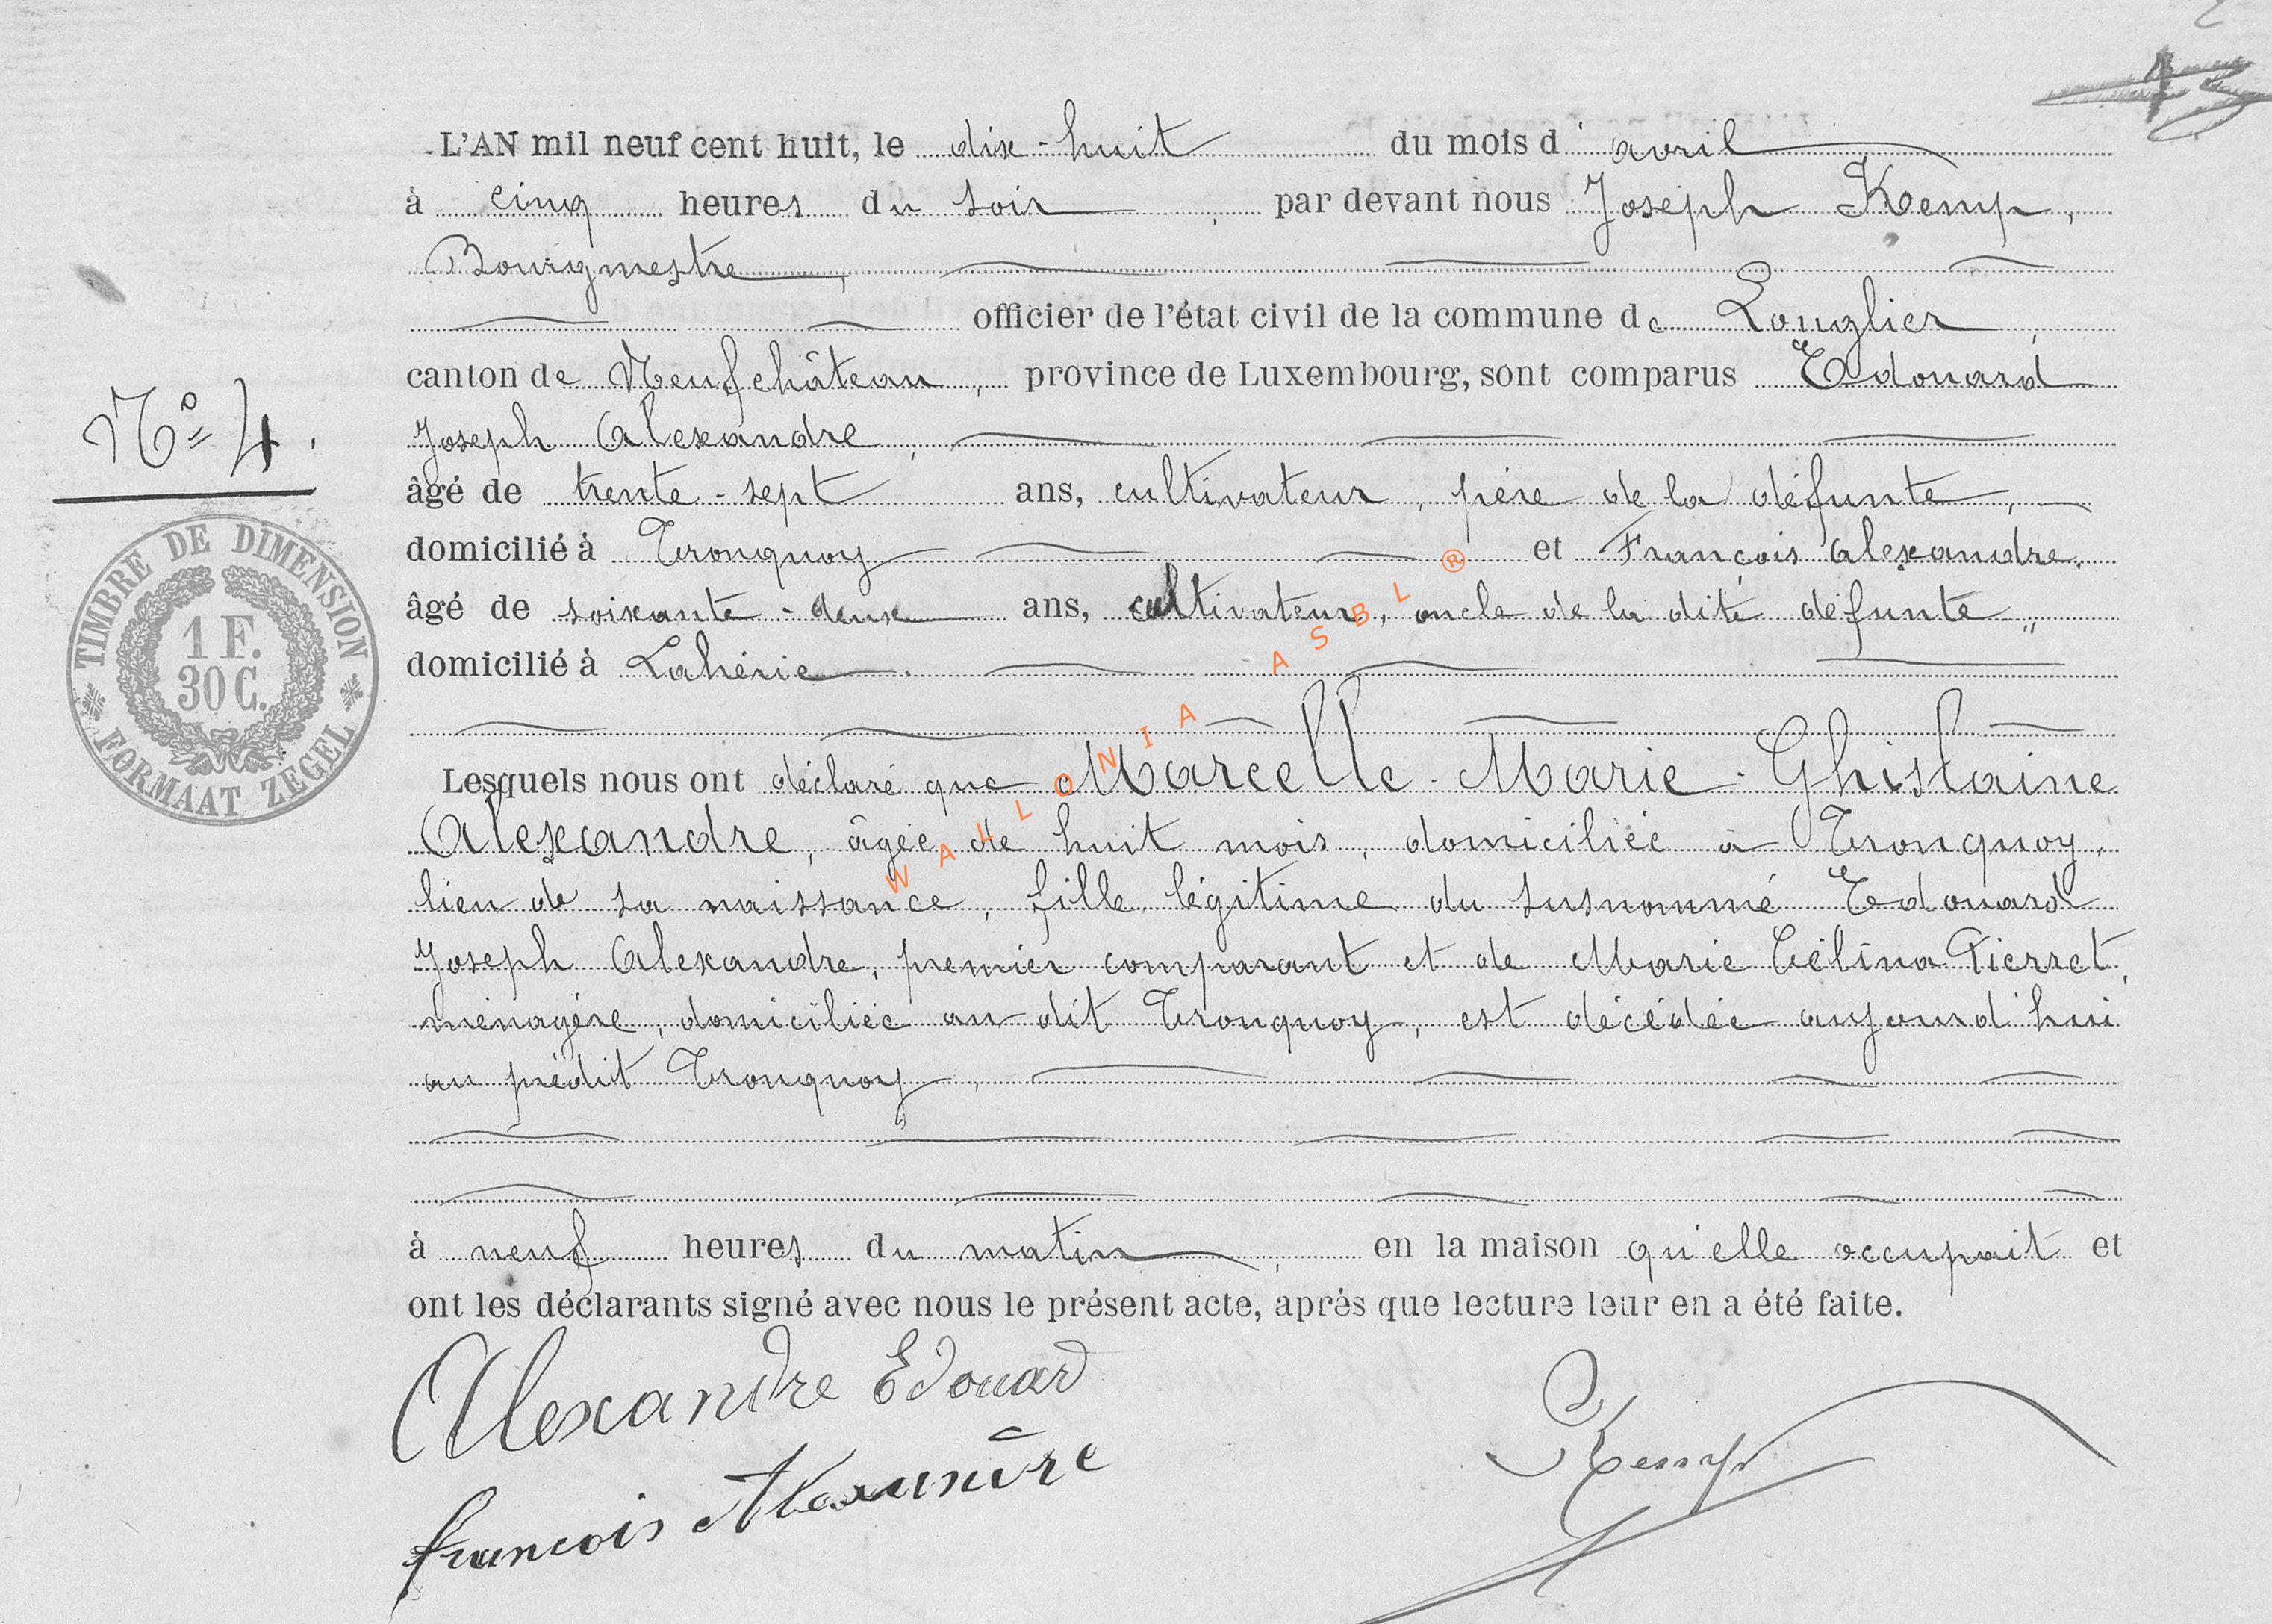 13
L'AN mil neuf cent huit, le dix-huit du mois d'avril
à cinq heures du soir, par devant nous Joseph Kemp,
Bourgmestre,
officier de l'état civil de la commune de Longlier,
canton de Neufchâteau, province de Luxembourg, sont comparus Edouard
Joseph Alexandre,
N° 4.
âgé de trente-sept ans, cultivateur, père de la défunte,
domicilié à Tronquoy et François Alexandre,
âgé de soixante-deux ans, cultivateur, oncle de la dite défunte,,
domicilié à Lahérie.
TIMBRE DE DIMENSION
1 F.
30 C.
FORMAAT ZEGEL
Lesquels nous ont déclaré que Marcelle-Marie-Ghislaine
Alexandre, âgée de huit mois, domiciliée à Tronquoy,
lieu de sa naissance, fille légitime du susnommé Edouard
Joseph Alexandre, premier comparant et de Marie Célina Pierret,
ménagère, domiciliée au dit Tronquoy, est décédée aujourd'hui
au prédit Tronquoy,
à neuf heures du matin, en la maison qu'elle occupait et
ont les déclarants signé avec nous le présent acte, après que lecture leur en a été faite.
Alexandre Edouard
françois Alexandre
Kemp
WALLONIA ASBL ®